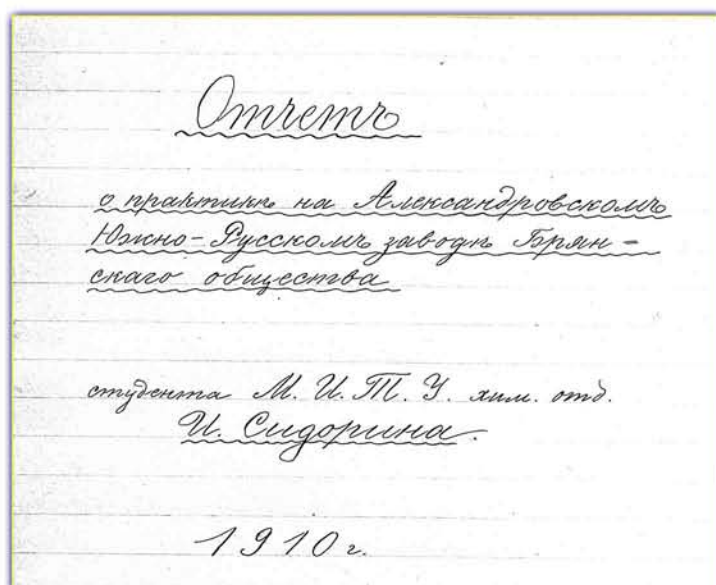 Отчетъ
о практикѣ на Александровскомъ
Южно-Русскомъ заводѣ Брян-
скаго общества
студента М. И. Т. У. хим. отд.
И. Сидорина.
1910 г.